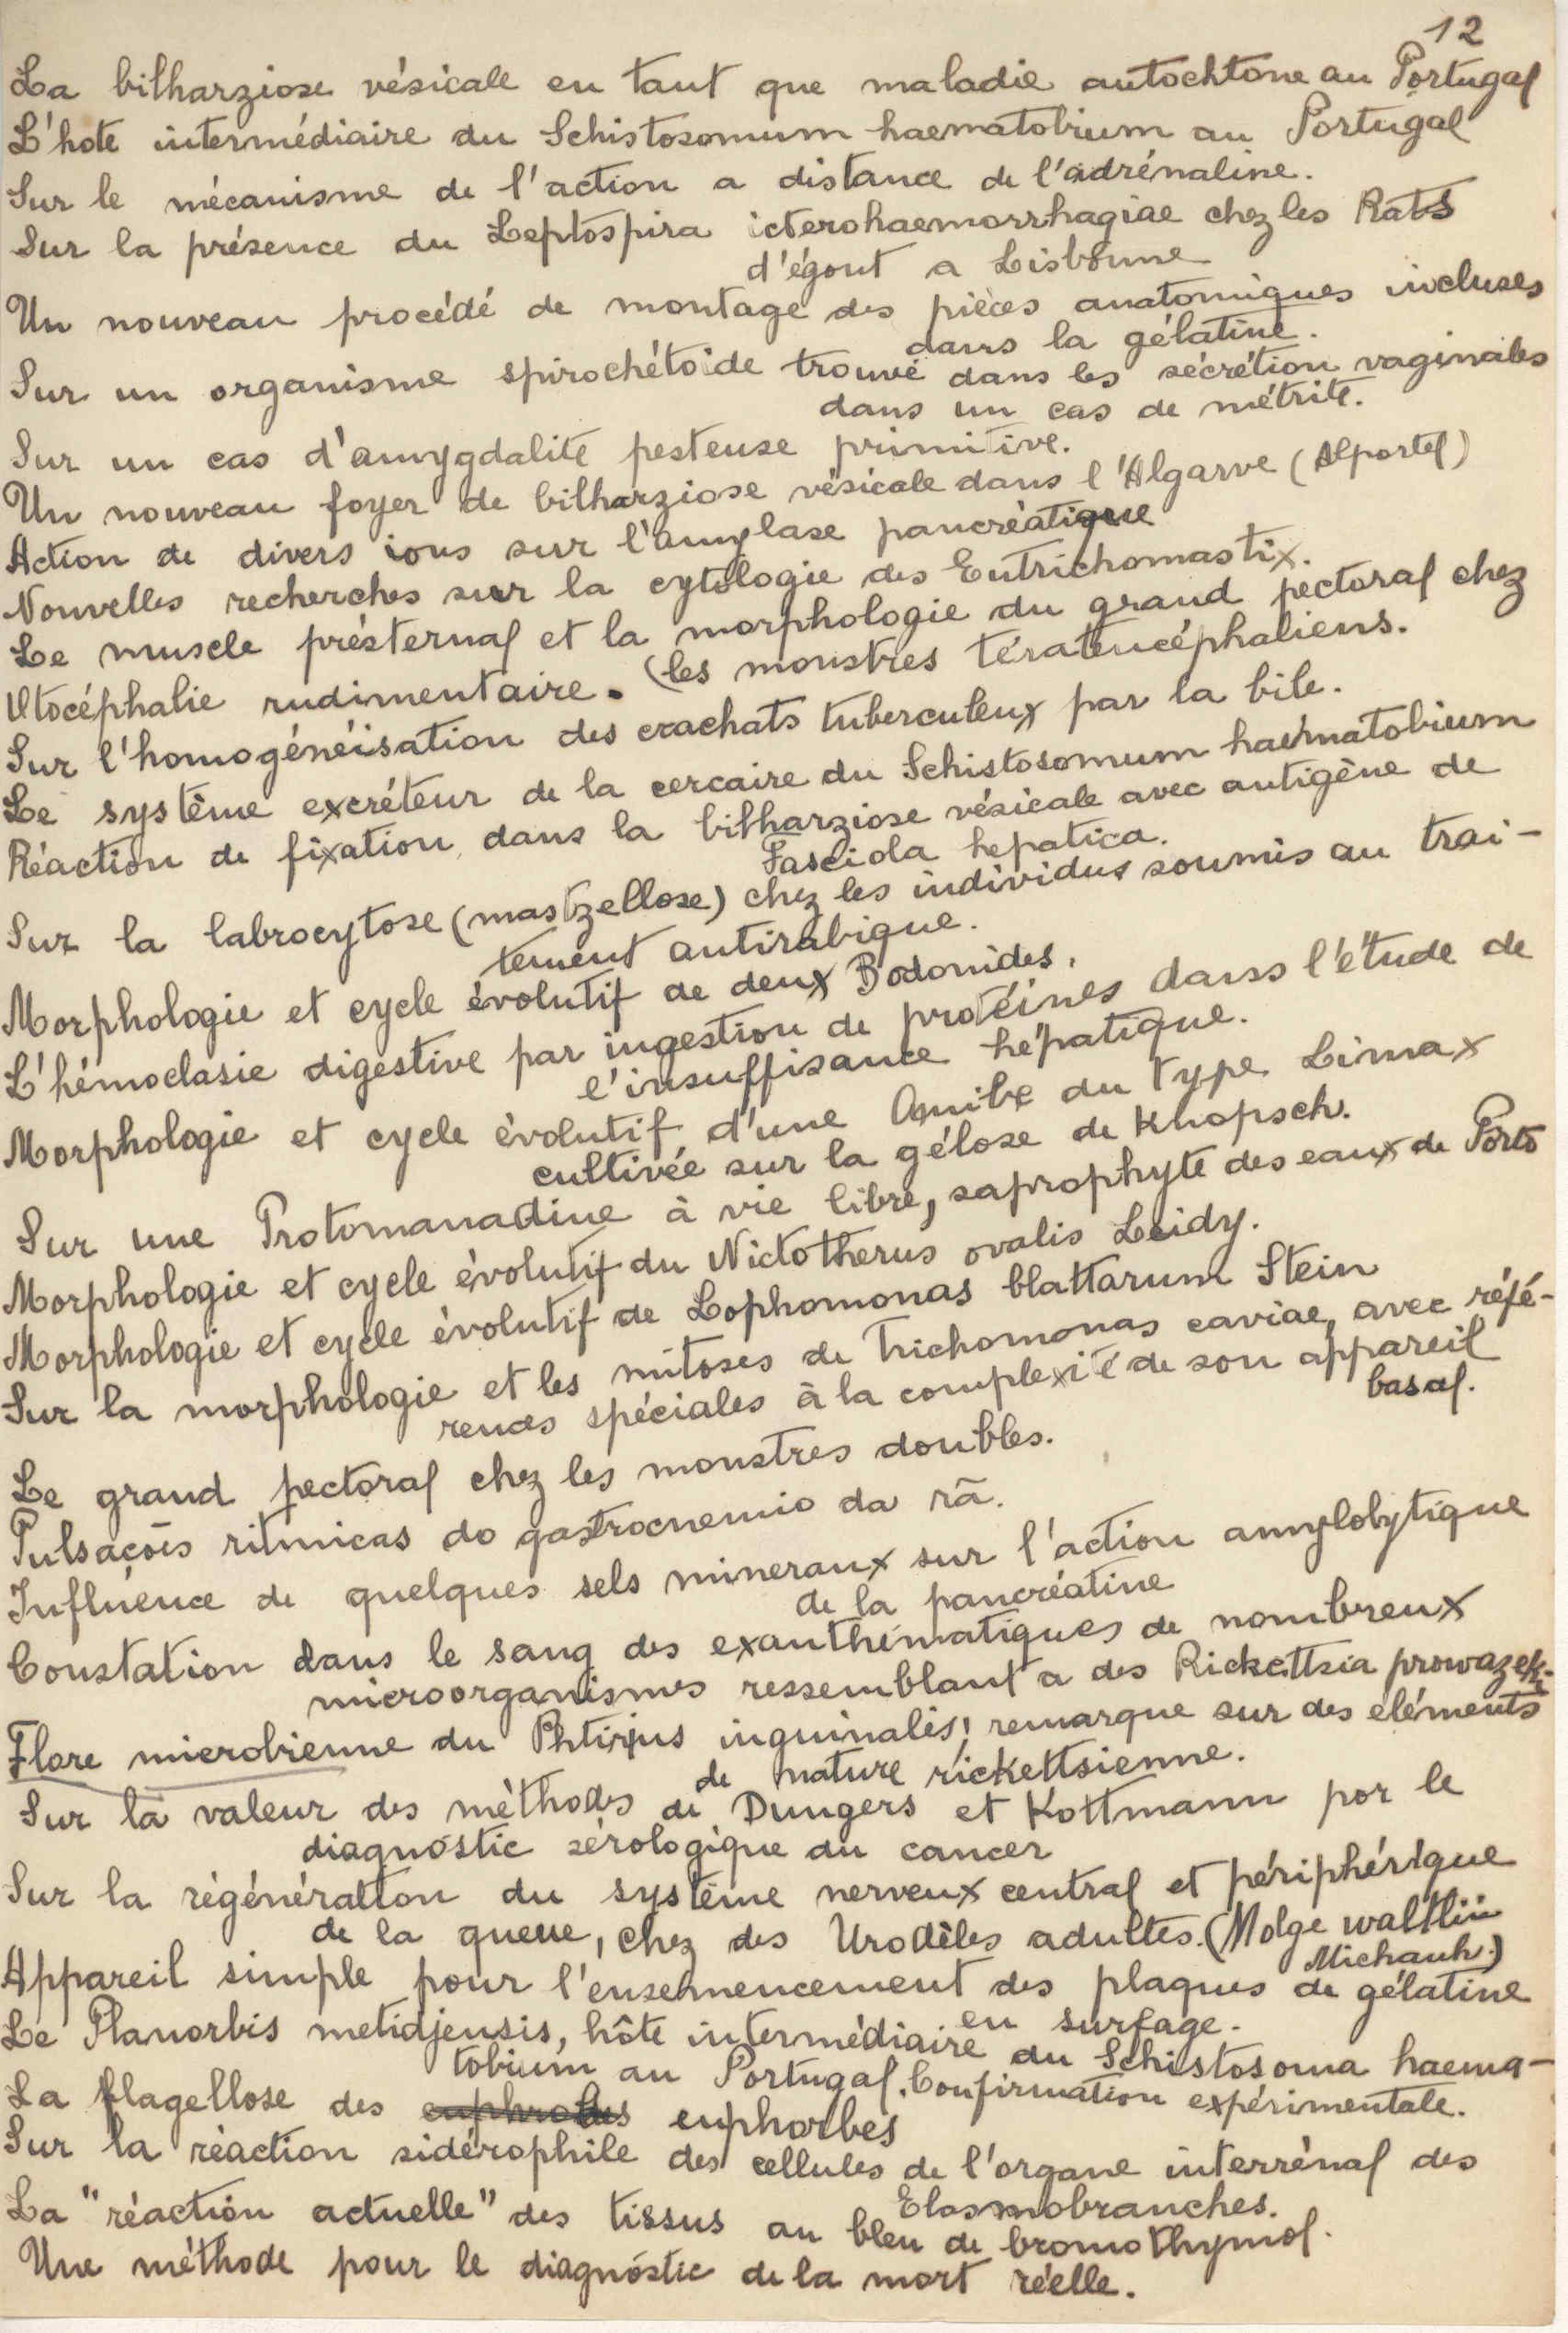 12
La bilharziose vésicale en tant que maladie autochtone au Portugal
L'hote intermédiaire du Schistosomum haematobium au Portugal
Sur le mécanisme de l'action a distance de l'adrénaline.
Sur la présence du Leptospira icterohaemorrhagiae chez les Rats
d'égout a Lisbonne
Un nouveau procédé de montage des pièces anatomiques incluses
dans la gélatine.
Sur un organisme spirochétoide trouvé dans les sécrétion vaginales
dans un cas de métrite.
Sur un cas d'amygdalite pesteuse primitive.
Un nouveau foyer de bilharziose vésicale dans l'Algarve (Alportel)
Action de divers ions sur l'amylase pancréatique
Nouvelles recherches sur la cytologie des Eutrichomastix.
Le muscle présternal et la morphologie du grand pectoral chez
(les monstres tératencéphaliens.
Otocéphalie rudimentaire.
Sur l'homogénéisation des crachats tuberculeux par la bile.
Le système excréteur de la cercaire du Schistosomum haematobium
Réaction de fixation dans la bilharziose vésicale avec antigène de
Fasciola hepatica.
Sur la labrocytose (mastzellose) chez les individus soumis au trai-
tement antirabique.
Morphologie et cycle évolutif de deux Bodonides.
L'hémoclasie digestive par ingestion de protéines dans l'étude de
l'insuffisance hépatique.
Morphologie et cycle évolutif d'une Amibe du type Limax
cultivée sur la gélose de Knopsch.
Sur une Protomanadine à vie libre, saprophyte des eaux de Porto
Morphologie et cycle évolutif du Nictotherus ovalis Leidy.
Morphologie et cycle évolutif de Lophomonas blattarum Stein
Sur la morphologie et les mitoses de Trichomonas caviae, avec réfé-
rences spéciales à la complexité de son appareil
basal.
Le grand pectoral chez les monstres doubles.
Pulsações ritmicas do gastrocnemio da rã.
Influence de quelques sels mineraux sur l'action amylolytique
de la pancréatine
Constation dans le sang des exanthématiques de nombreux
microorganismes ressemblant a des Rickettsia prowazeki.
Flore microbienne du Phtirius inguinalis; remarque sur des eléments
de nature rickettsienne.
Sur la valeur des méthodes de Dungers et Kottmann por le
diagnóstic sérologique du cancer
Sur la régénération du système nerveux central et périphérique
de la queue, chez des Urodèles adultes. (Molge waltlii
Michauh.)
Appareil simple pour l'ensemencement des plaques de gélatine
en surfage.
Le Planorbis metidjensis, hôte intermédiaire du Schistosoma haema-
tobium au Portugal. Confirmation expérimentale.
La flagellose des euphorbes
Sur la réaction sidérophile des cellules de l'organe interrénal des
Elasmobranches.
La "réaction actuelle" des tissus au bleu de bromothymol.
Une méthode pour le diagnóstic de la mort réelle.